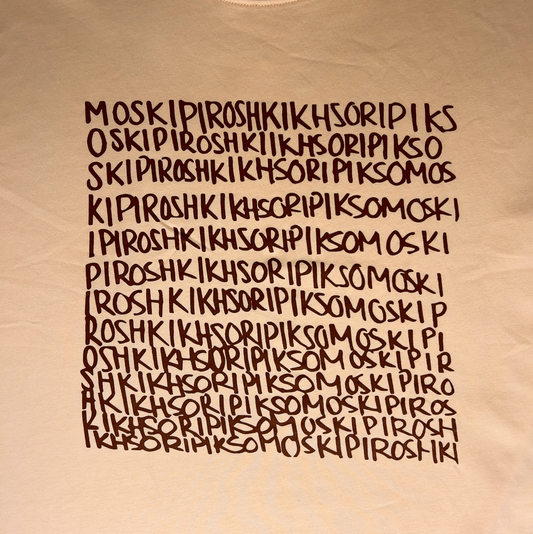 MOSKIPIROSHKIKHSORIPIKS
OSKIPIROSHKIIKHSORIPIKSO
SKIPIROSHKIKHSORIPIKSOMOS
KIPIROSHKIKHSORIPIKSOMOSKI
IPIROSHKIKHSORIPIKSOMOSKI
PIROSHKIKHSORIPIKSOMOSKI
IROSHKIKHSORIPIKSOMOSKIP
ROSHKIKHSORIPIKSOMOSKIPI
OSHKIKHSORIPIKSOMOSKIPIR
SHKIKHSORIPIKSOMOSKIPIRO
HKIKHSORIPIKSOMOSKIPIROS
KIKHSORIPIKSOMOSKIPIROSH
IKHSORIPIKSOMOSKIPIROSHKI